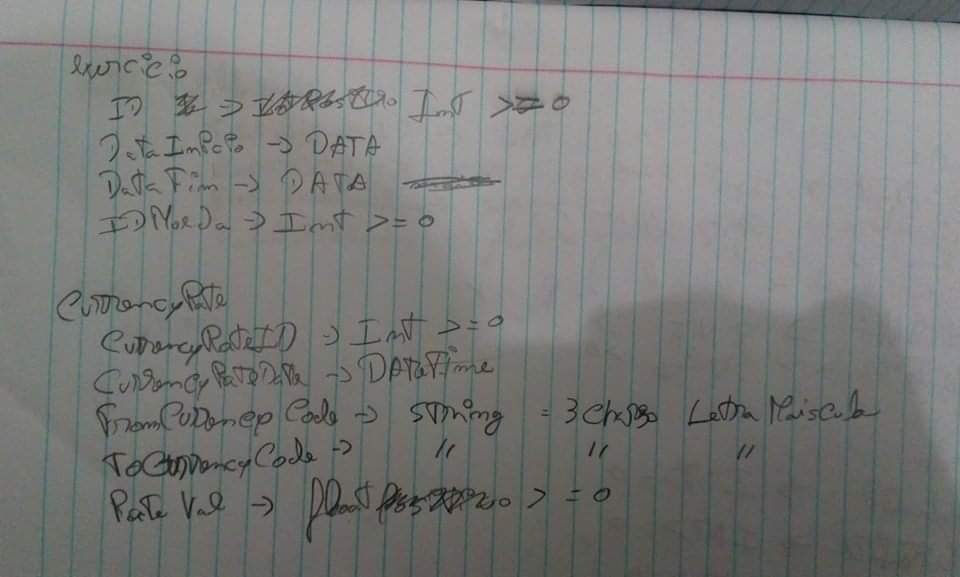 exercicio
ID => Int >= 0
DataInicio -> DATA
DataFim -> DATA
IDMoeDa -> Int >= 0
CurrencyRate
CurrencyRateID -> Int >= 0
CurrencyRateData -> DATATime
FromCurrency Code -> String = 3 Letra Maiscula
ToCurrencyCode -> " " "
Rate Val -> float >= 0